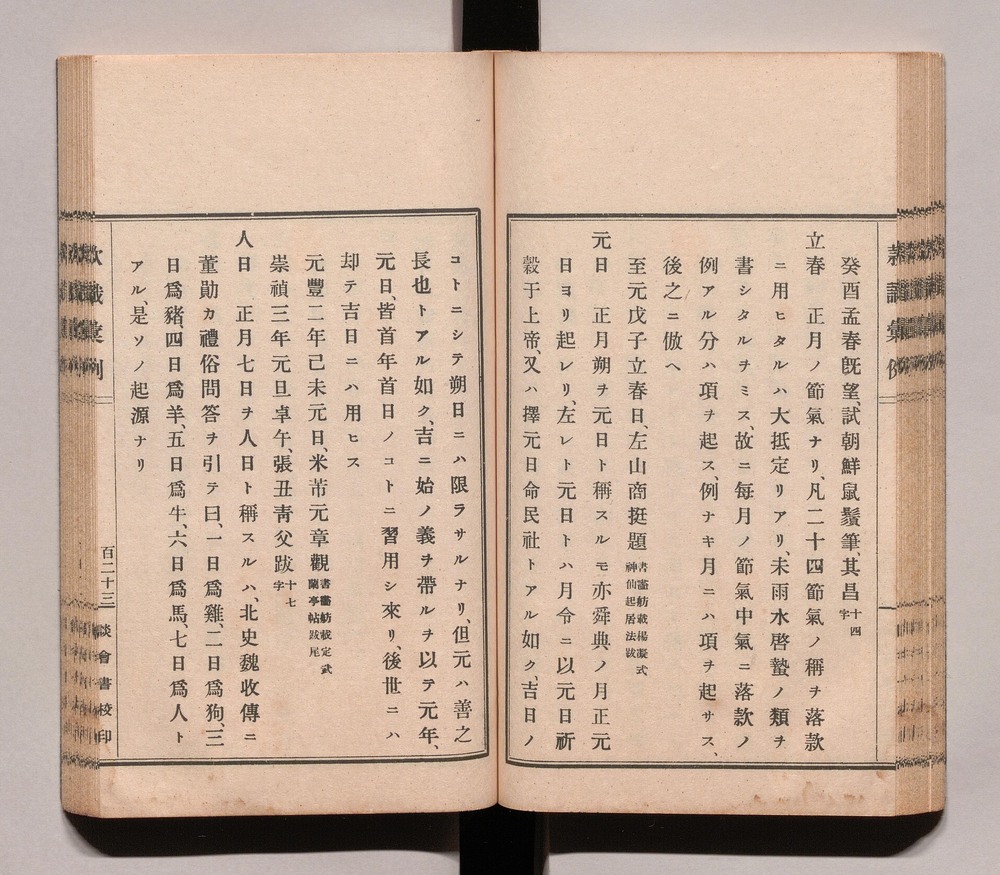 癸酉孟春旣望、試朝鮮鼠鬚筆、其昌十四字
立春　正月ノ節氣ナリ、凡二十四節氣ノ稱ヲ落款
ニ用ヒタルハ大抵定リアリ、未雨水啓蟄ノ類ヲ
書シタルヲミス、故ニ每月ノ節氣中氣ニ落款ノ
例アル分ハ項ヲ起ス、例ナキ月ニハ項ヲ起サス、
後之ニ倣へ
至元戊子立春日、左山商挺題書畵舫載楊凝式神仙起居法跋
元日　正月朔ヲ元日ト稱スルモ亦舜典ノ月正元
日ヨリ起レリ、左レト元日トハ月令ニ以元日祈
穀于上帝、又ハ擇元日命民社トアル如ク、吉日ノ
コトニシテ朔日ニハ限ラサルナリ、但元ハ善之
長也トアル如ク、吉ニ始ノ義ヲ帶ルヲ以テ元年、
元日、皆首年首日ノコトニ習用シ來リ、後世ニハ
却テ吉日ニハ用ヒス
元豐二年己未元日、米芾元章觀書畵舫載定武蘭亭帖跋尾
崇禎三年元旦卓午、張丑靑父跋十七字
人日　正月七日ヲ人日ト稱スルハ、北史魏收傳ニ
董勛カ禮俗問答ヲ引テ曰、一日爲雞、二日爲狗、三
日爲豬、四日爲羊、五日爲牛、六日爲馬、七日爲人ト
アル、是ソノ起源ナリ
款識彙例
百二十三
談會書校印